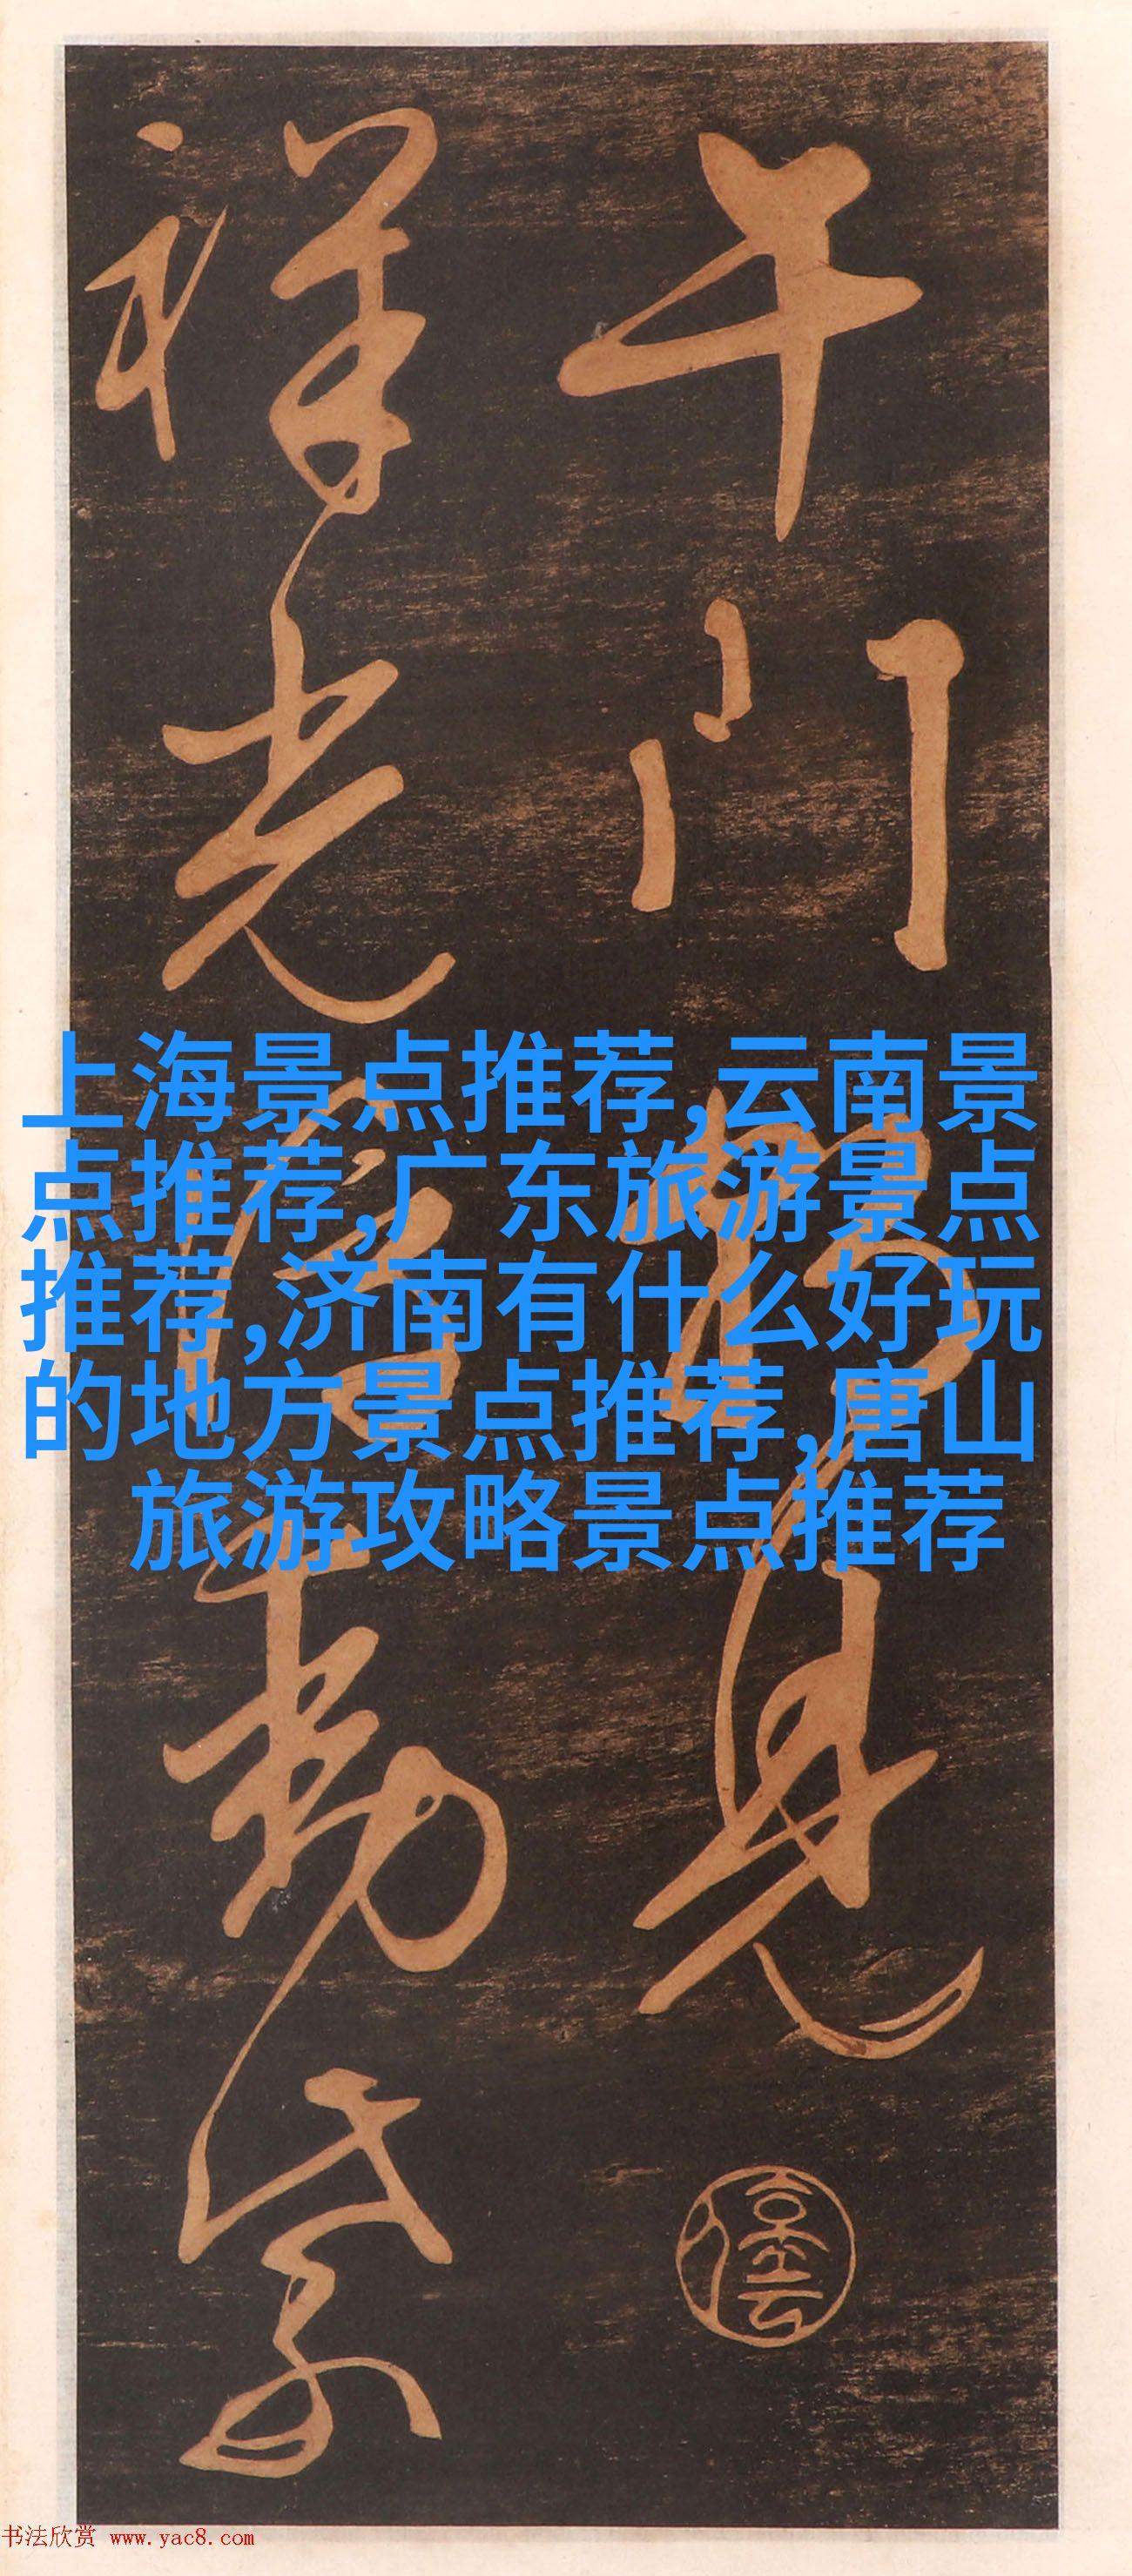 午门
祥光
勤紫
上海景点推荐,云南景
点推荐,广东旅游景点
推荐,济南有什么好玩
的地方景点推荐,唐山
旅游攻略景点推荐
书法欣赏 www.yac8.com